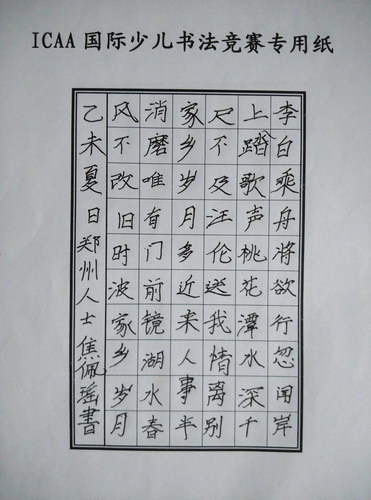 ICAA 国际少儿书法竞赛专用纸
李白乘舟将欲行忽闻岸
上踏歌声桃花潭水深千
尺不及汪伦送我情离别
家乡岁月多近来人事半
消磨唯有门前镜湖水春
风不改旧时波家乡岁月
乙未夏日郑州人士焦佩瑶書